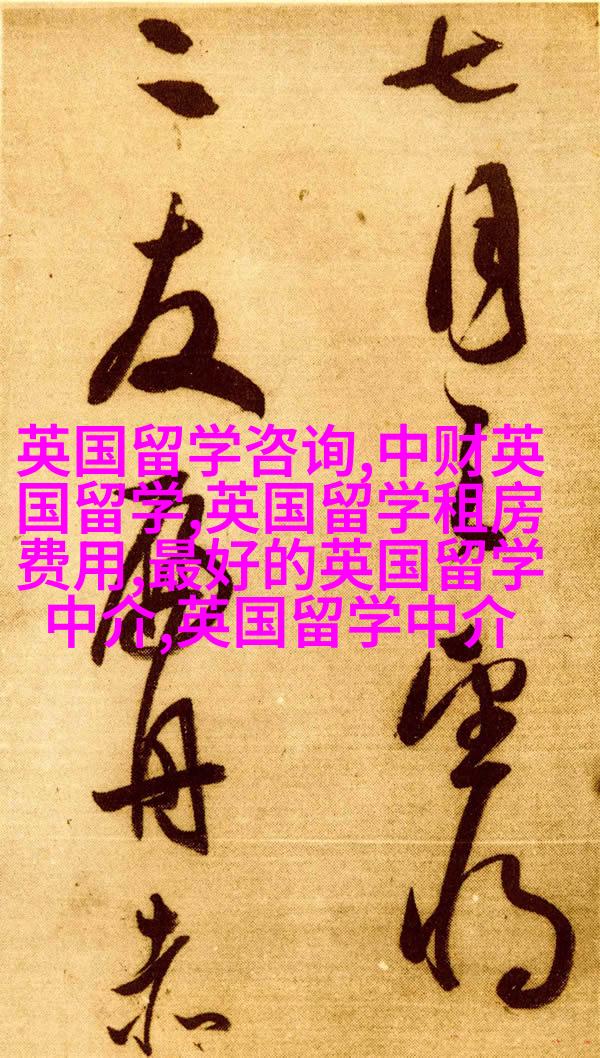 七月望将
二友扁舟赤
英国留学咨询,中财英
国留学,英国留学租房
费用,最好的英国留学
中介,英国留学中介